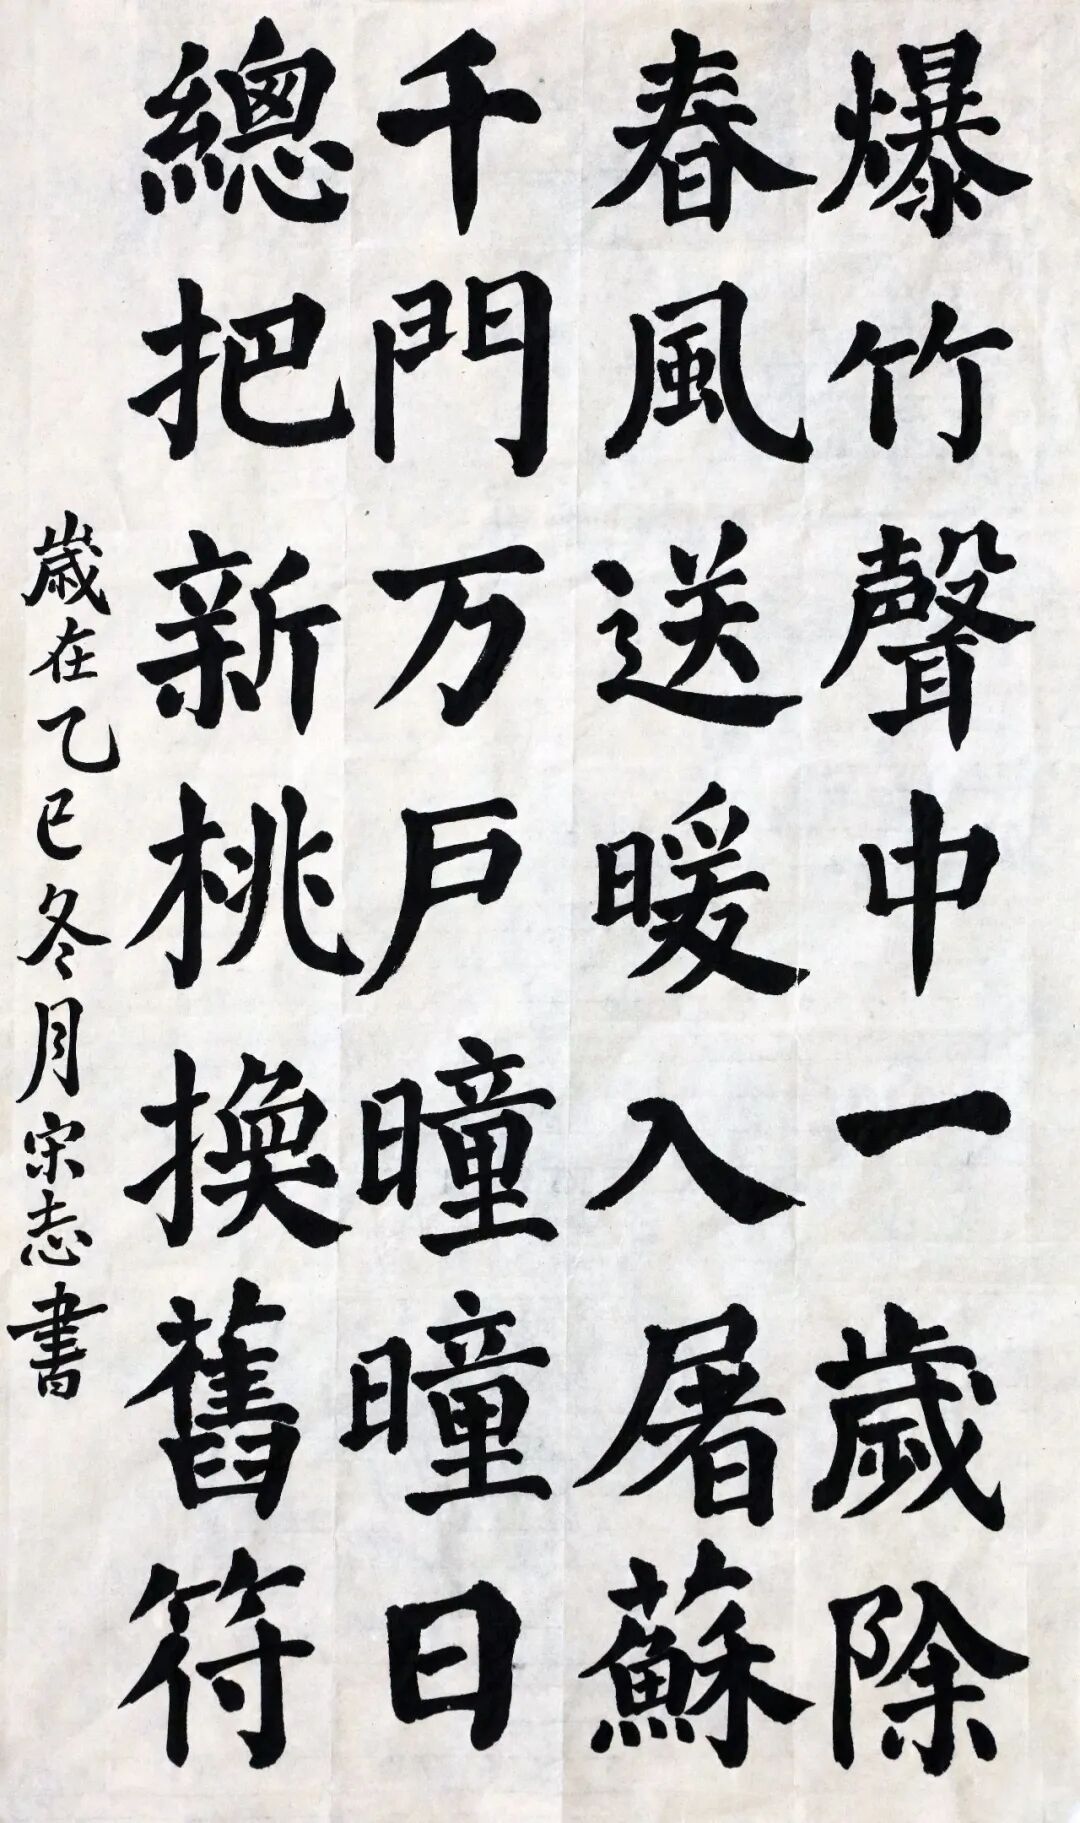 爆竹聲中一歲除
春風送暖入屠蘇
千門万戶曈曈日
總把新桃換舊符
歲在乙巳冬月宋志書